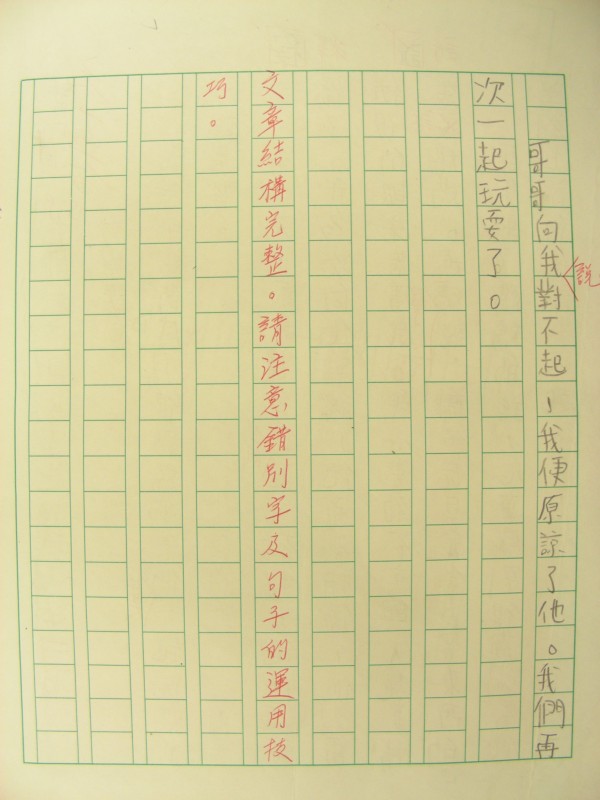 哥哥向我對不起，我便原諒了他。我們再
說
次一起玩耍了。
文章結構完整。請注意錯別字及句子的運用技
巧。